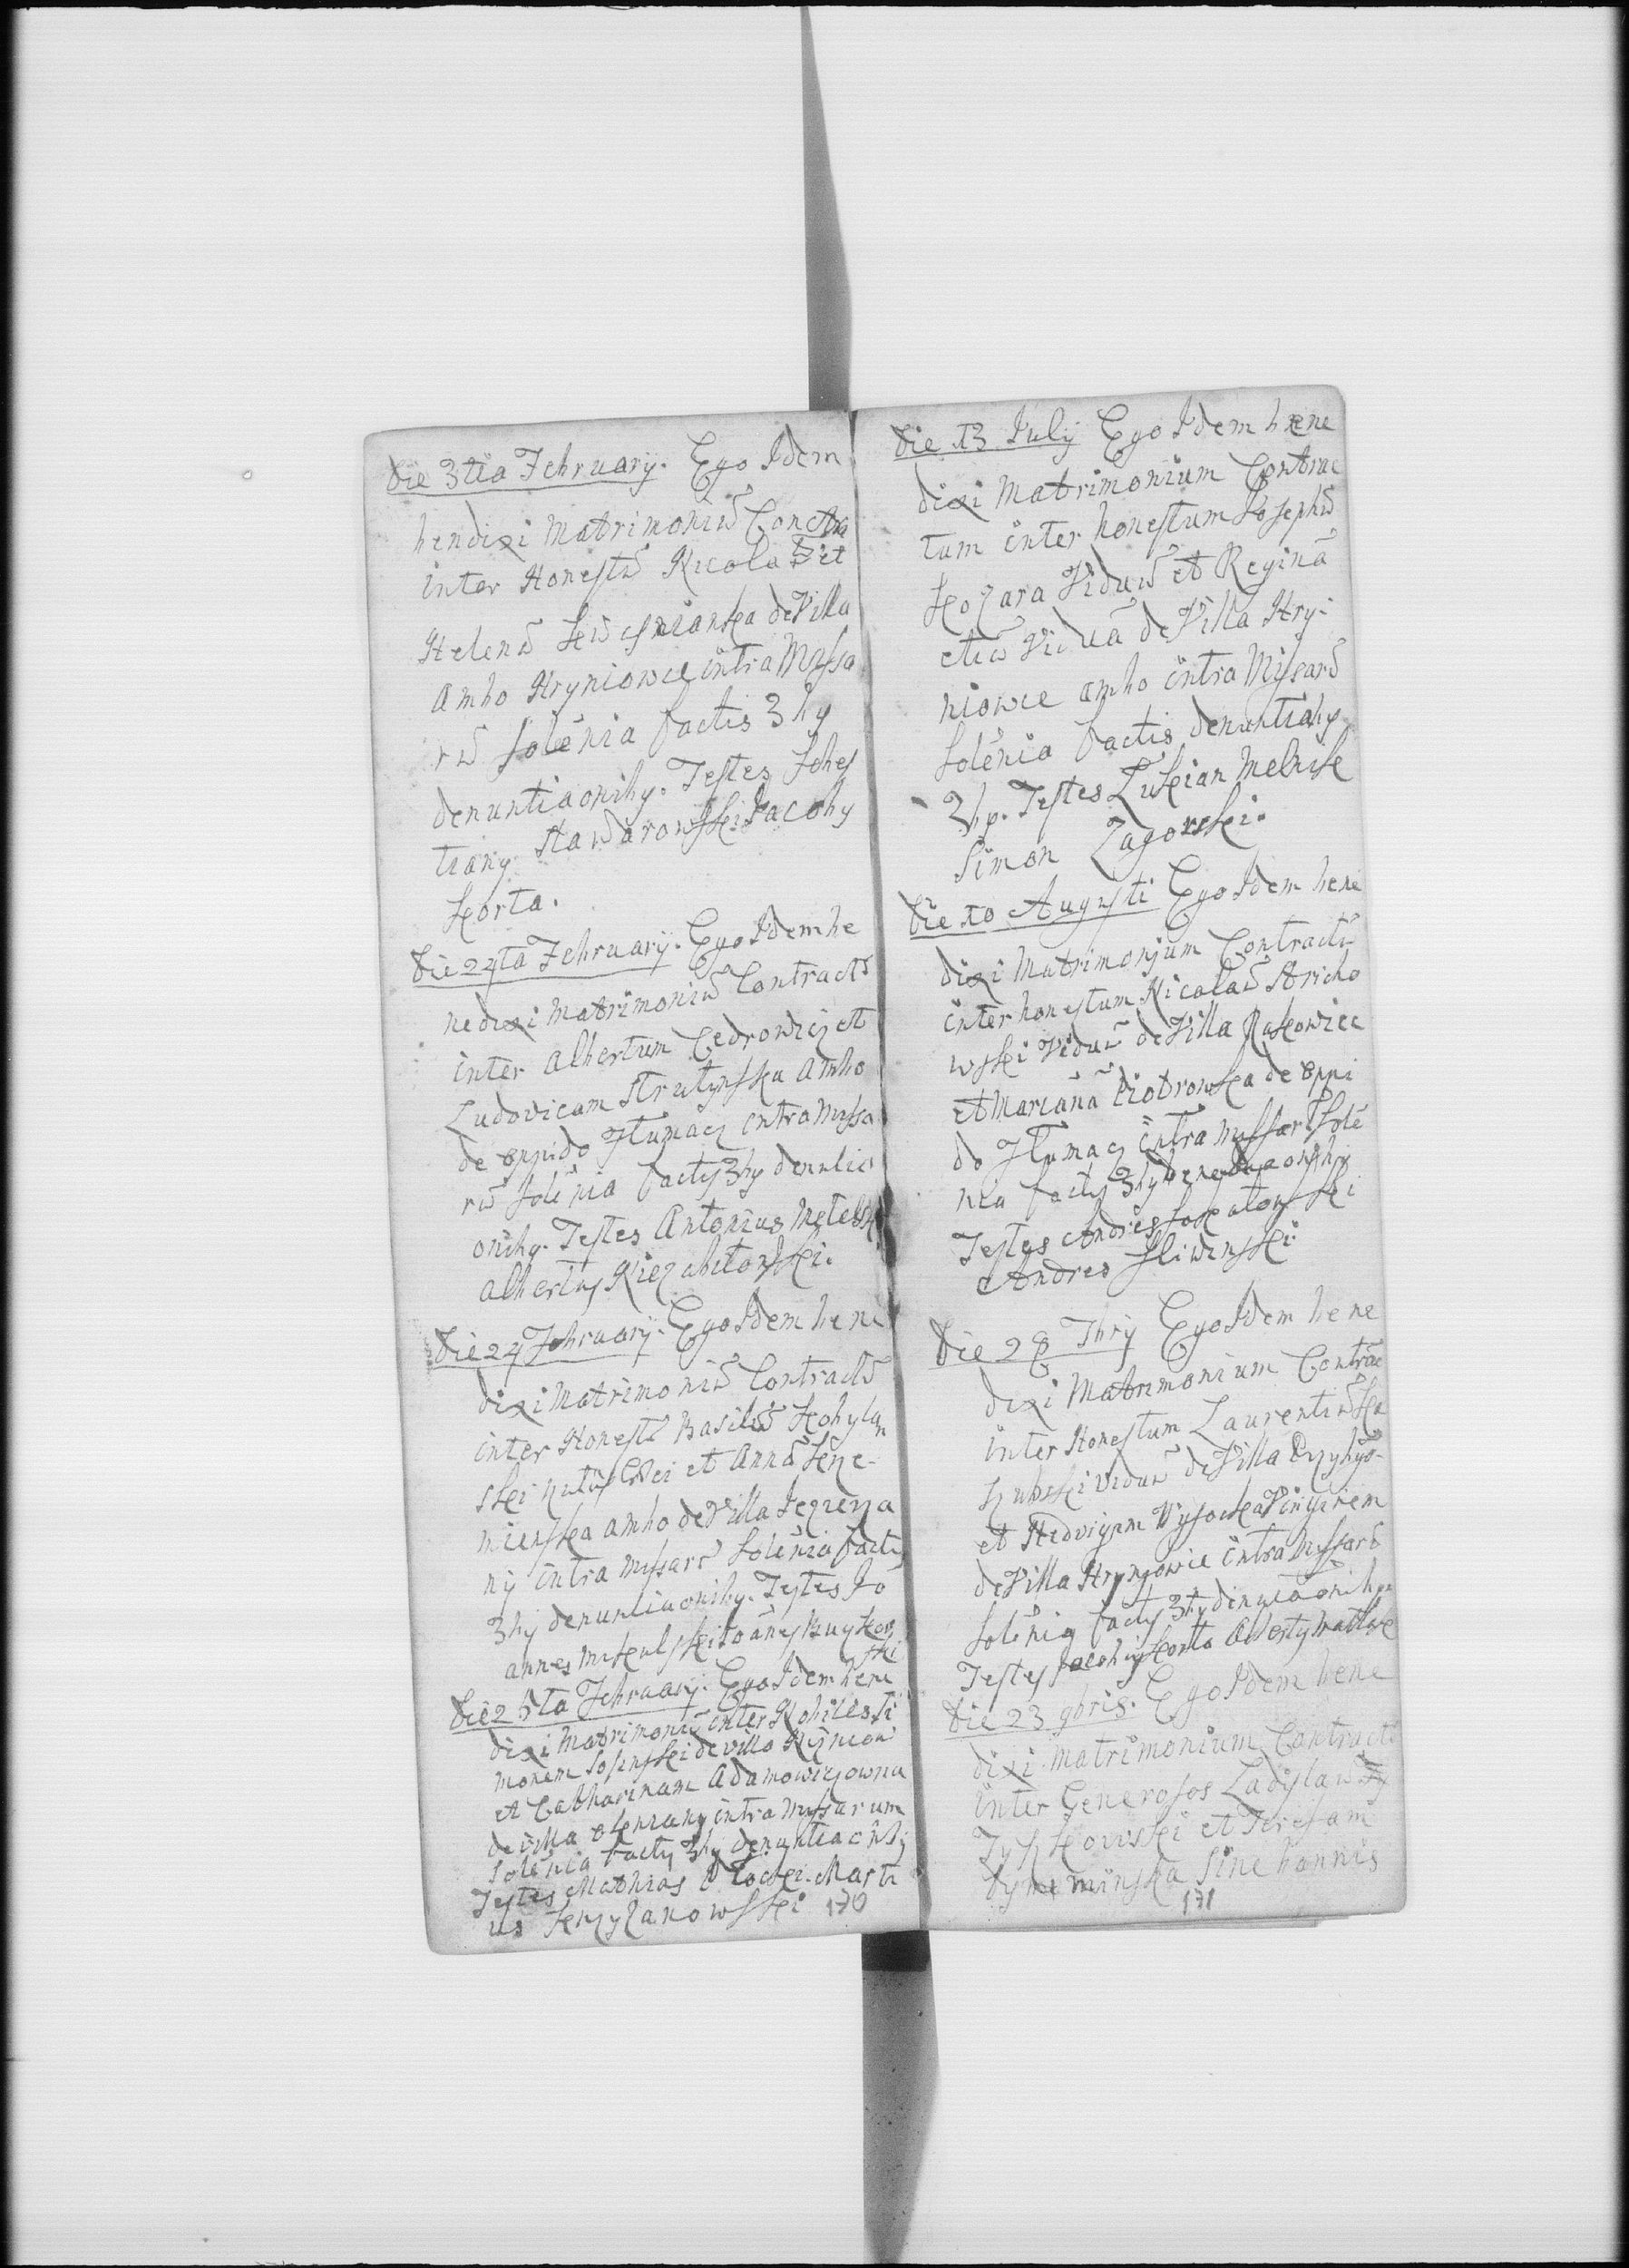 Die 3tia February. Ego Idem
benedixi Matrimoniū Contra
inter Honestū Nicolaū et
Helenā de Villa
ambo Hryniowce intra Missa
rū solēnia factis 3by
denuntiaoniby. Testes Sebes
tiany Stawarowski Jacoby
Korta.
Die 24ta February. Ego Idem be
nedixi Matrimoniū Contractū
inter Albertum Cedrowicz et
Ludovicam Strutynska ambo
de oppido Tłumacz intra Missa
rū solēnia factis 3by denutia
oniby. Testes Antonius
Albertus Niezabitowski.
Die 24 February. Ego Idem bene
dixi Matrimoniū Contractū
inter Honestū Basiliū Kobylan
ski et Annā
mienska ambo de Villa Jezierza
ny intra Missarū solēnia factis
3by denuntiaoniby. Testes Jo
annes Mikulski Joānes
ski
Die 25ta February. Ego Idem bene
dixi Matrimoniū inter Nobiles Si
monem Sosinski de villa
et Catharinam Adamowiczowna
de villa intra Missarum
solēnia factis 3by denuntiaoniby
Testes Mathias Płocki. Marti
us Krzyzanowski 170
Die 13 July Ego Idem bene
dixi Matrimonium Contrac
tum inter honestum Josephū
Kozara Viduū et Reginā
etiā Viduā de Villa Hry-
niowce ambo intra Misarū
solēnia factis denuntiaby
3by. Testes Łukian Melnik
Simon Zagorski.
Die 10 Augusti Ego Idem bene
dixi Matrimonjum Contractū
inter honestum Nicolaū Stricho
wski Viduū de Villa
et Mariānā Piotrowska de oppi
do Tłumacz intra Missarū solē
nia factis 3by
Testes Andres Sokołowski
Andres Sliwinski
Die 28 7bry Ego Idem bene
dixi Matrimonium Contrac
inter Honestum Laurentiū Ka
szubski viduū de Villa Przybyło-
et Hedvigem Wysocka Virginem
de Villa Hryniowce intra Missarū
solēnia factis 3by denutiaoniby
Testes Jacoby Korta Alberty
Die 23 9bris. Ego Idem bene
dixi Matrimonium Contractū
inter Generosos Ladislaū
Tyszkowski et Teresam
Dymeminska sine bannis
171